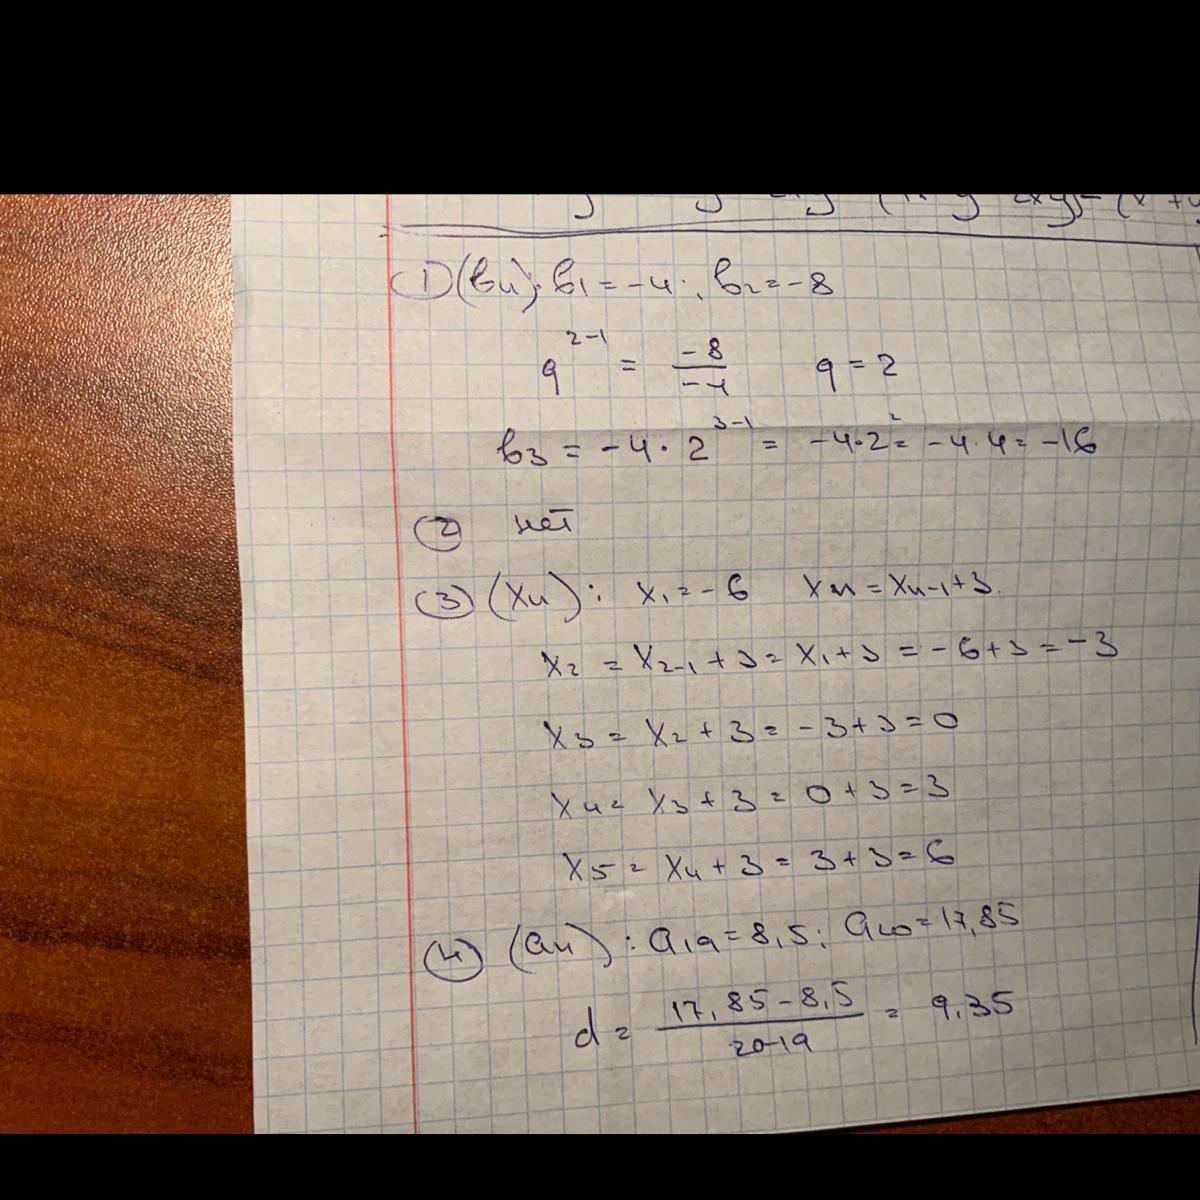 ① (вn): в1 = -4; в2 = -8
q^{2-1} = \frac{-8}{-4} q = 2
в3 = -4·2^{3-1} = -4·2^2 = -4·4 = -16
② нет
③ (xn): x1 = -6 xn = xn-1+3.
x2 = x2-1+3 = x1+3 = -6+3 = -3
x3 = x2+3 = -3+3 = 0
x4 = x3+3 = 0+3 = 3
x5 = x4+3 = 3+3 = 6
④ (an): a19 = 8,5; a20 = 17,85
d = \frac{17,85-8,5}{20-19} = 9,35